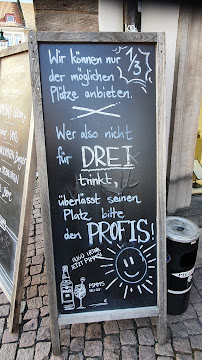 Wir können nur
der möglichen
Plätze anbieten.
1/3
Wer also nicht
für DREI
trinkt,
überlässt seinen
Platz bitte
den PROFIS!
PIMMS